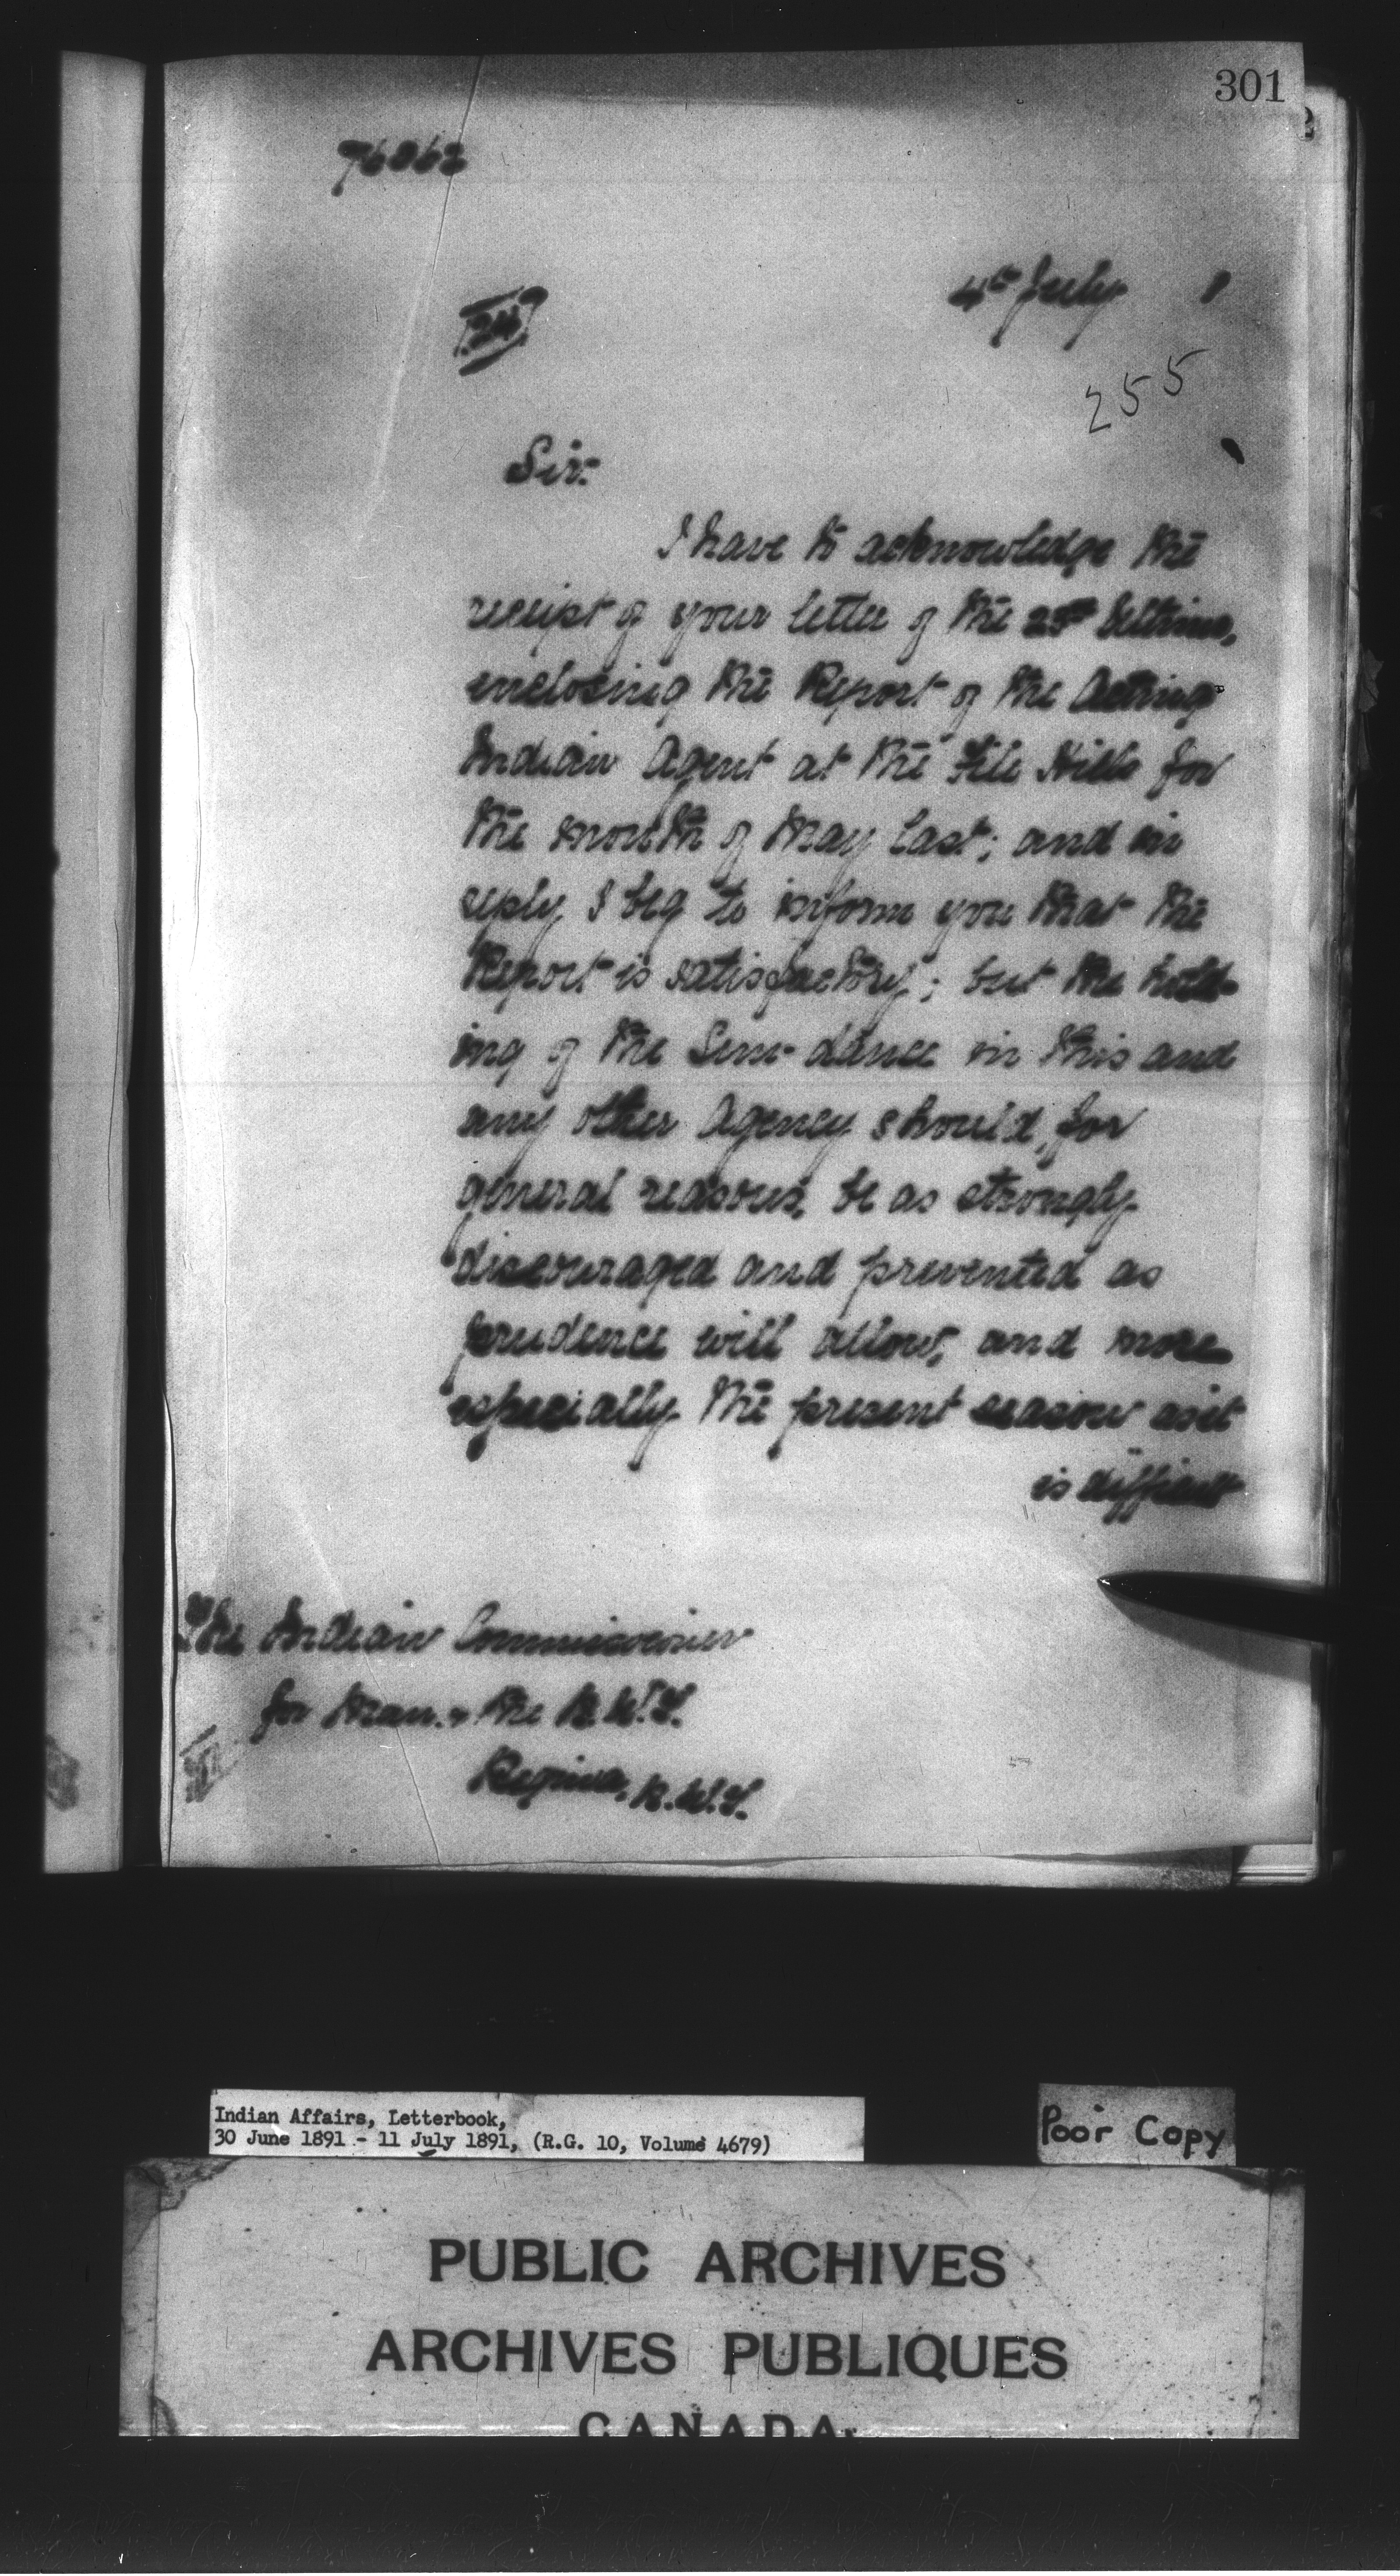 301
4th July 1
255
Sir:
I have to acknowledge the
receipt of your letter of the Ultimo,
enclosing the Report of the Acting
Indian Agent at the File Hills for
the month of May last; and in
reply I beg to inform you that the
Report is satisfactory; but the hold-
ing of the Sun-dance in this and
any other Agency should, for
general reasons, be as strongly
discouraged and prevented as
prudence will allow, and more
especially the present season as it
is difficult
The Indian Commissioner
for Man. & the N.W.T.
Regina, N.W.T.
Indian Affairs, Letterbook,
30 June 1891 - 11 July 1891, (R.G. 10, Volume 4679)
Poor Copy
PUBLIC ARCHIVES
ARCHIVES PUBLIQUES
CANADA